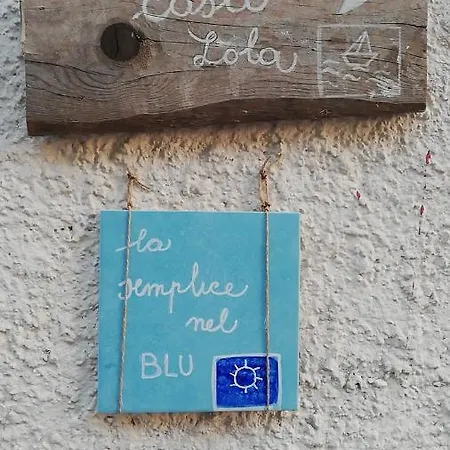 Casa
Lola
la
semplice
nel
BLU